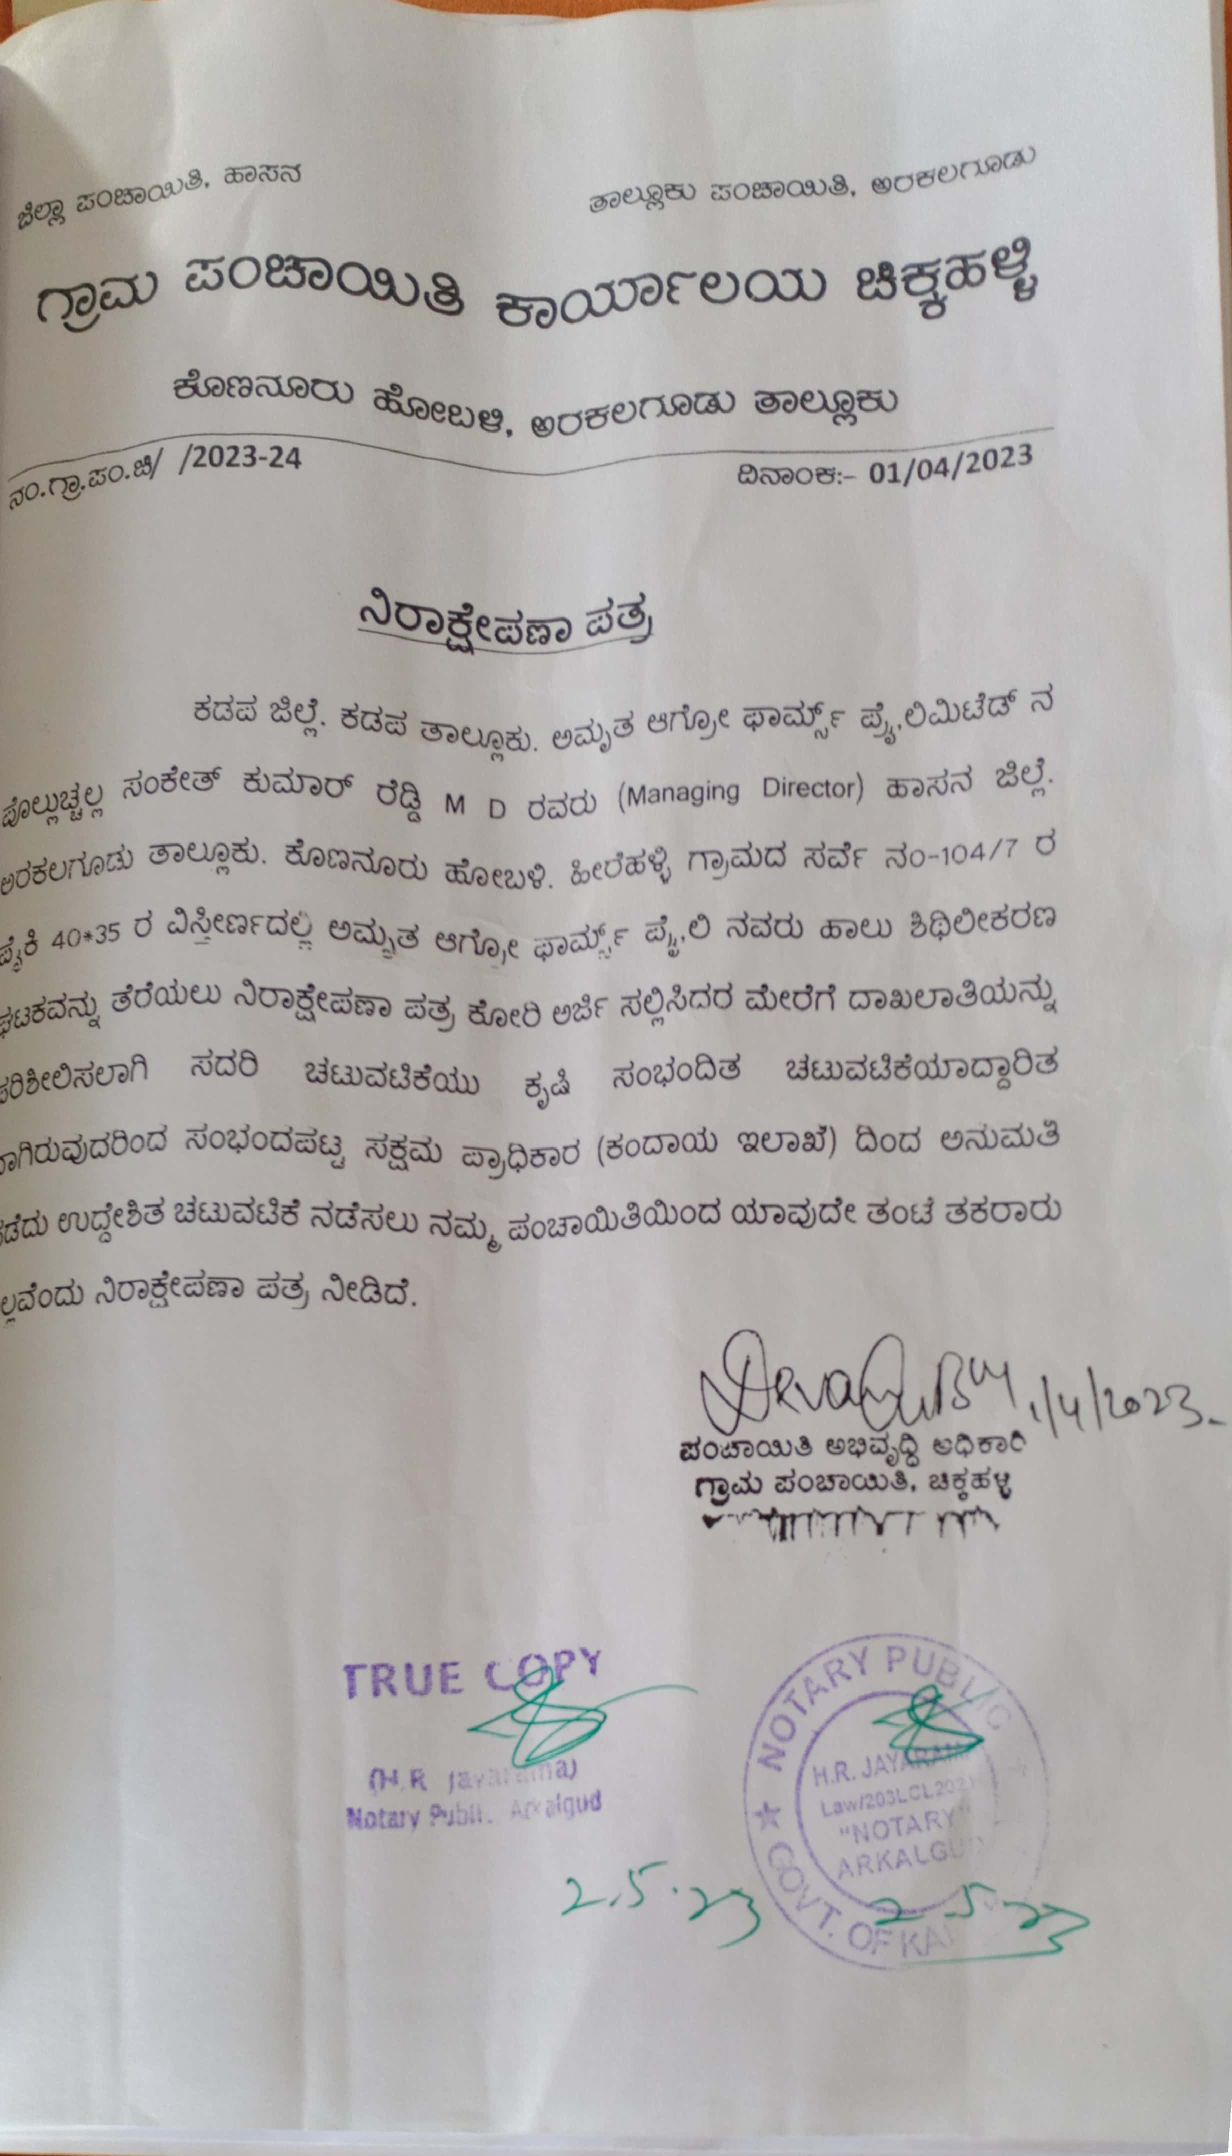 ಜಿಲ್ಲಾ ಪಂಚಾಯಿತಿ, ಹಾಸನ
ತಾಲ್ಲೂಕು ಪಂಚಾಯಿತಿ, ಅರಕಲಗೂಡು
ಗ್ರಾಮ ಪಂಚಾಯಿತಿ ಕಾರ್ಯಾಲಯ ಚಿಕ್ಕಹಳ್ಳಿ
ಕೊಣನೂರು ಹೋಬಳಿ, ಅರಕಲಗೂಡು ತಾಲ್ಲೂಕು
ನಂ.ಗ್ರಾ.ಪಂ.ಚಿ/ /2023-24
ದಿನಾಂಕ:- 01/04/2023
ನಿರಾಕ್ಷೇಪಣಾ ಪತ್ರ
ಕಡಪ ಜಿಲ್ಲೆ. ಕಡಪ ತಾಲ್ಲೂಕು. ಅಮೃತ ಆಗ್ರೋ ಫಾರ್ಮ್ಸ್ ಪ್ರೈ.ಲಿಮಿಟೆಡ್ ನ
ಪೊಲ್ಲುಚ್ಚಲ್ಲ ಸಂಕೇತ್ ಕುಮಾರ್ ರೆಡ್ಡಿ M D ರವರು (Managing Director) ಹಾಸನ ಜಿಲ್ಲೆ.
ಅರಕಲಗೂಡು ತಾಲ್ಲೂಕು. ಕೊಣನೂರು ಹೋಬಳಿ. ಹೀರೆಹಳ್ಳಿ ಗ್ರಾಮದ ಸರ್ವೆ ನಂ-104/7 ರ
ಪೈಕಿ 40*35 ರ ವಿಸ್ತೀರ್ಣದಲ್ಲಿ ಅಮೃತ ಆಗ್ರೋ ಫಾರ್ಮ್ಸ್ ಪ್ರೈ.ಲಿ ನವರು ಹಾಲು ಶಿಥಿಲೀಕರಣ
ಘಟಕವನ್ನು ತೆರೆಯಲು ನಿರಾಕ್ಷೇಪಣಾ ಪತ್ರ ಕೋರಿ ಅರ್ಜಿ ಸಲ್ಲಿಸಿದರ ಮೇರೆಗೆ ದಾಖಲಾತಿಯನ್ನು
ಪರಿಶೀಲಿಸಲಾಗಿ ಸದರಿ ಚಟುವಟಿಕೆಯು ಕೃಷಿ ಸಂಭಂದಿತ ಚಟುವಟಿಕೆಯಾದ್ದಾರಿತ
ವಾಗಿರುವುದರಿಂದ ಸಂಭಂದಪಟ್ಟ ಸಕ್ಷಮ ಪ್ರಾಧಿಕಾರ (ಕಂದಾಯ ಇಲಾಖೆ) ದಿಂದ ಅನುಮತಿ
ಪಡೆದು ಉದ್ದೇಶಿತ ಚಟುವಟಿಕೆ ನಡೆಸಲು ನಮ್ಮ ಪಂಚಾಯಿತಿಯಿಂದ ಯಾವುದೇ ತಂಟೆ ತಕರಾರು
ಲ್ಲವೆಂದು ನಿರಾಕ್ಷೇಪಣಾ ಪತ್ರ ನೀಡಿದೆ.
1/4/2023
ಪಂಚಾಯಿತಿ ಅಭಿವೃದ್ಧಿ ಅಧಿಕಾರಿ
ಗ್ರಾಮ ಪಂಚಾಯಿತಿ, ಚಿಕ್ಕಹಳ್ಳಿ
TRUE COPY
(H.R. Jayarama)
Notary Public. Arkalgud
2.5.23
NOTARY PUBLIC
H.R. JAYARAMA
"NOTARY"
ARKALGUD
GOVT. OF KAR
2.5.23